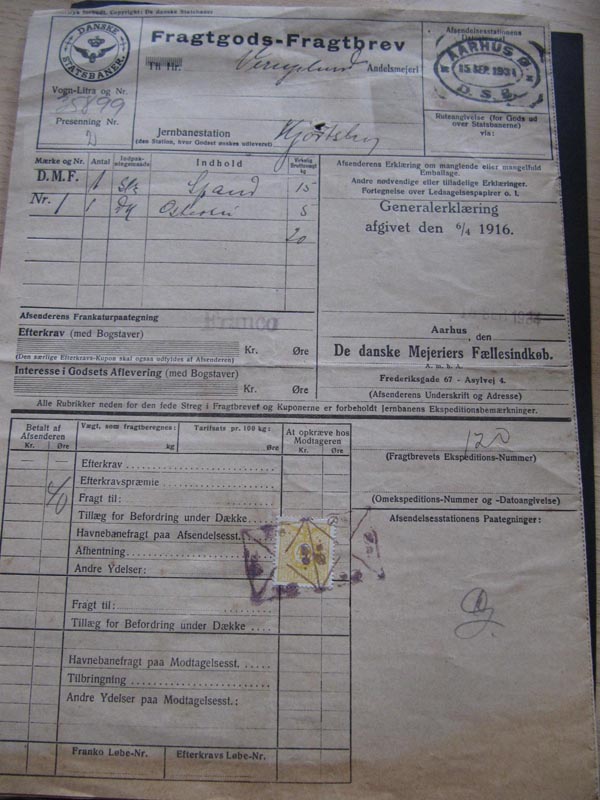 Eftertryk forbudt. Copyright: De danske Statsbaner
DANSKE
STATSBANER
Vogn-Litra og Nr.
35899
Presenning Nr.
Fragtgods-Fragtbrev
Til Hr.
Andelsmejeri
Jernbanestation
(den Station, hvor Godset ønskes udleveret)
Afsendelsesstationens
AARHUS Ø
15. SEP. 1934
D. S. B.
Ruteangivelse (for Gods ud
over Statsbanerne)
via:
Mærke og Nr. Antal Indpak-ningsmaade Indhold Virkelig Bruttovægt kg
D.M.F. 1 Spand 15
Nr. 1 1 5
20
Afsenderens Erklæring om manglende eller mangelfuld
Emballage.
Andre nødvendige eller tilladelige Erklæringer.
Fortegnelse over Ledsagelsespapirer o. l.
Generalerklæring
afgivet den 6/4 1916.
Afsenderens Frankaturpaategning
Franco
Efterkrav (med Bogstaver)
Kr. Øre
(Den særlige Efterkravs-Kupon skal ogsaa udfyldes af Afsenderen)
Interesse i Godsets Aflevering (med Bogstaver)
Kr. Øre
Aarhus
den
De danske Mejeriers Fællesindkøb.
A. m. b. A.
Frederiksgade 67 - Asylvej 4.
(Afsenderens Underskrift og Adresse)
Alle Rubrikker neden for den fede Streg i Fragtbrevet og Kuponerne er forbeholdt Jernbanens Ekspeditionsbemærkninger.
Betalt af
Afsenderen
Kr. Øre
Vægt, som fragtberegnes: kg
Tarifsats pr. 100 kg: Øre
At opkræve hos
Modtageren
Kr. Øre
Efterkrav
Efterkravspræmie
Fragt til:
Tillæg for Befordring under Dække
Havnebanefragt paa Afsendelsesst.
Afhentning
Andre Ydelser:
Fragt til:
Tillæg for Befordring under Dække
Havnebanefragt paa Modtagelsesst.
Tilbringning
Andre Ydelser paa Modtagelsesst.:
Franko Løbe-Nr. Efterkravs Løbe-Nr.
120
(Fragtbrevets Ekspeditions-Nummer)
(Omekspeditions-Nummer og -Datoangivelse)
Afsendelsesstationens Paategninger: